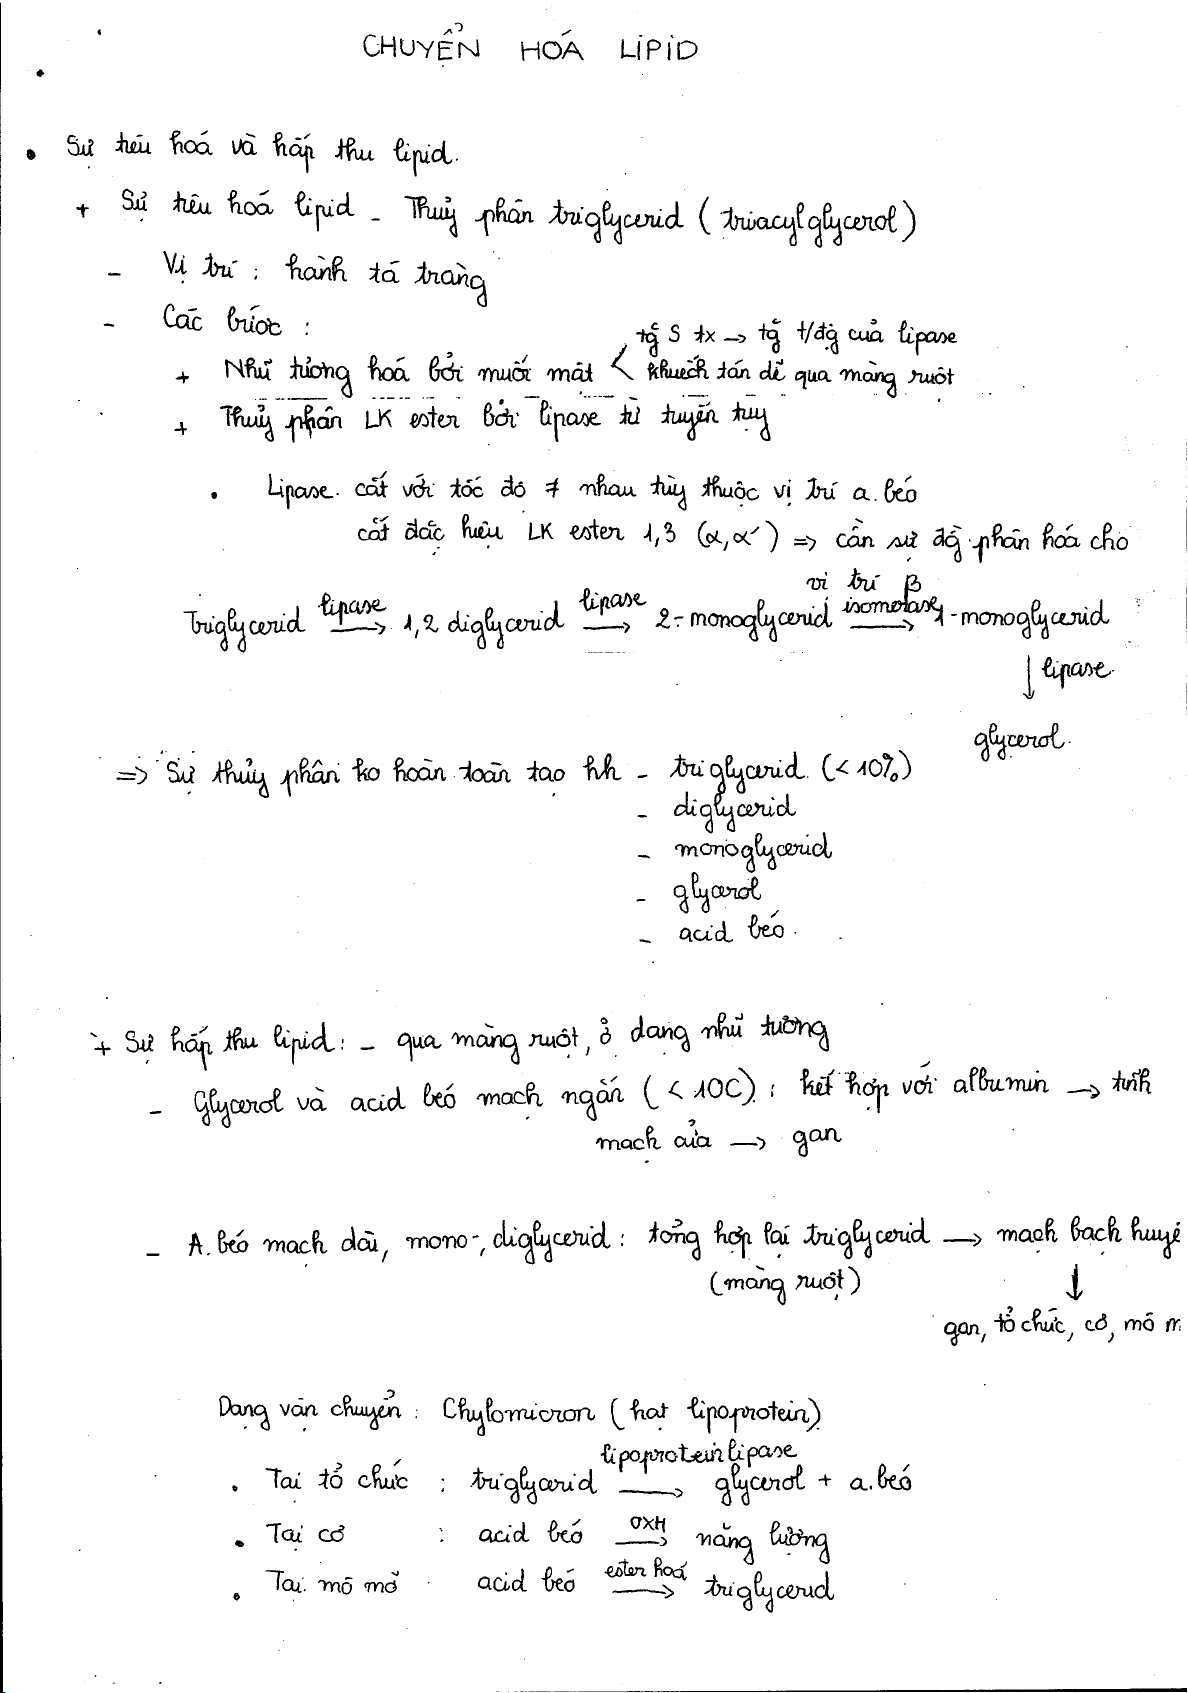 CHUYỂN HOÁ LIPID
• Sự tiêu hoá và hấp thu lipid.
+ Sự tiêu hoá lipid - Thuỷ phân triglycerid (triacylglycerol)
- Vị trí : hành tá tràng
- Các bước :
tg̃ S tx → tg̃ t/đg̣ của lipase
+ Nhũ tương hoá bởi muối mật < khuếch tán dễ qua màng ruột
+ Thuỷ phân LK ester bởi lipase từ tuyến tuỵ
• Lipase. cắt với tốc độ ≠ nhau tùy thuộc vị trí a. béo
cắt đặc hiệu LK ester 1,3 (α,α') => cần sự đg̀ phân hoá cho
vị trí β
Triglycerid lipase → 1,2 diglycerid lipase → 2-monoglycerid isomerase → 1-monoglycerid
↓ lipase.
glycerol.
=> Sự thủy phân ko hoàn toàn tạo hh - triglycerid (<10%)
- diglycerid
- monoglycerid
- glycerol
- acid béo.
+ Sự hấp thu lipid: - qua màng ruột, ở dạng nhũ tương
- Glycerol và acid béo mạch ngắn (<10C) : kết hợp với albumin → tĩnh
mạch cửa → gan
- A. béo mạch dài, mono-, diglycerid : tổng hợp lại triglycerid → mạch bạch huyế
(màng ruột) ↓
gan, tổ chức, cơ, mô m
Dạng vận chuyển : Chylomicron (hạt lipoprotein)
lipoproteinlipase
• Tại tổ chức : triglycerid → glycerol + a.béo
• Tại cơ : acid béo OXH → năng lượng
• Tại mô mỡ acid béo ester hoá → triglycerid